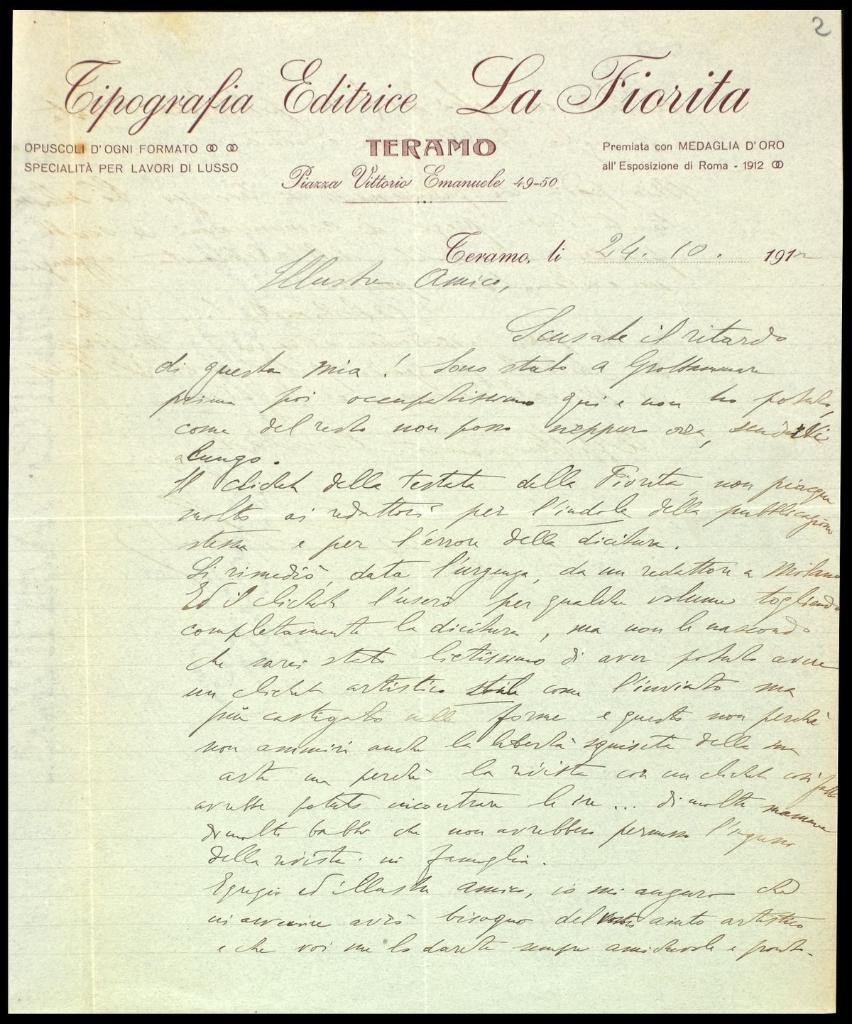 2
Tipografia Editrice La Fiorita
OPUSCOLI D'OGNI FORMATO
SPECIALITÀ PER LAVORI DI LUSSO
TERAMO
Piazza Vittorio Emanuele 49-50
Premiata con MEDAGLIA D'ORO
all'Esposizione di Roma - 1912
Teramo, li 24. 10. 1912
Illustre Amico,
Scusate il ritardo
di questa mia! Sono stato a Grottammare
prima poi occupatissimo qui e non ho potuto,
come del resto non posso neppure ora,
a lungo.
Il cliché della testata della Fiorita non piacque
molto ai redattori per l'indole della pubblicazione
stessa e per l'errore della dicitura.
Si rimediò, data l'urgenza, da un redattore a Milano
Ed il cliché l'userò per qualche volume togliendo
completamente la dicitura, ma non le nascondo
che sarei stato lietissimo di aver potuto avere
un cliché artistico come l'inviato ma
più castigato nelle forme e questo non perché
non ammiri anche la libertà squisita della sua
arte ma perché la rivista con un cliché così fatto
avrebbe potuto incontrare le ire... di molte mamme
di molti babbi che non avrebbero permesso l'ingresso
della rivista in famiglia.
Egregio ed illustre amico, io mi auguro che
in avvenire avrò bisogno del vostro aiuto artistico
e che voi me lo darete sempre amichevole e